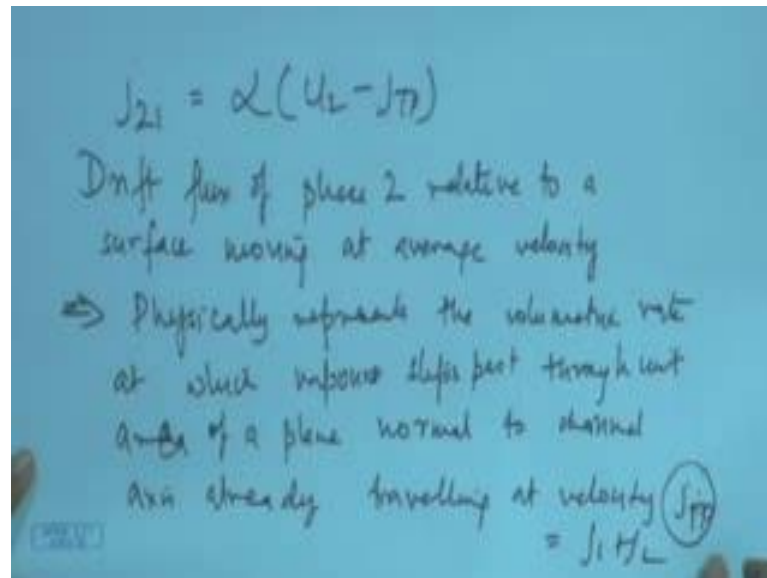 J21 = α(U2-JTP)
Drift flux of phase 2 relative to a
surface moving at average velocity
⇒ Physically represents the volumetric rate
at which vapour slips past through unit
area of a plane normal to channel
axis already travelling at velocity JTP
= J1+J2